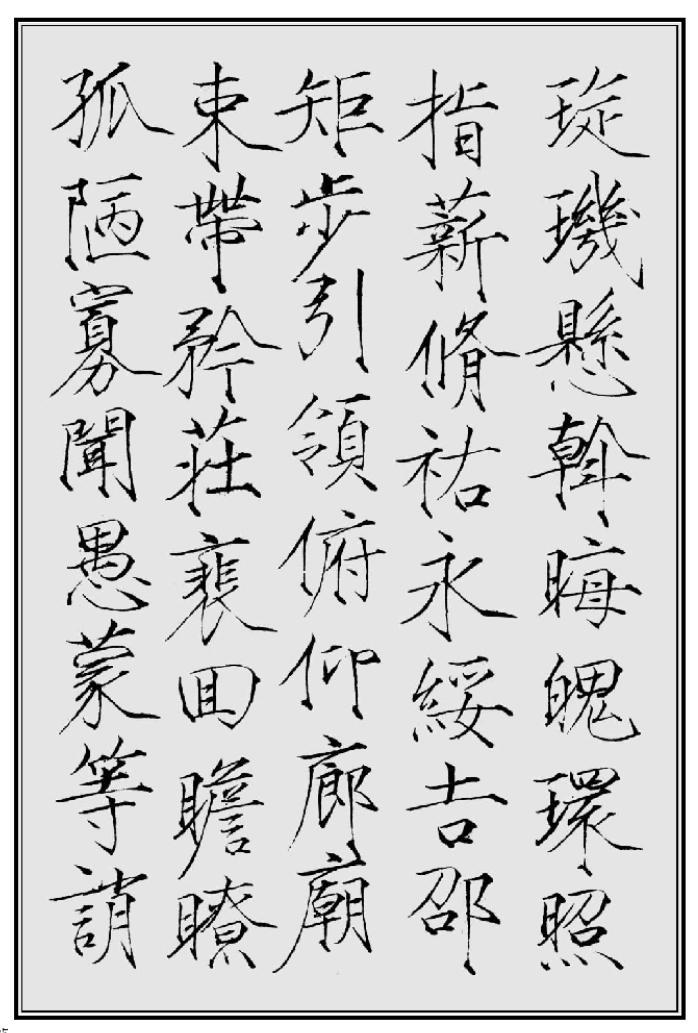 琁璣懸斡晦魄環照
指薪脩祜永綏吉邵
矩步引領俯仰廊廟
束帶矜莊裵回瞻瞭
孤陋寡聞愚蒙等誚